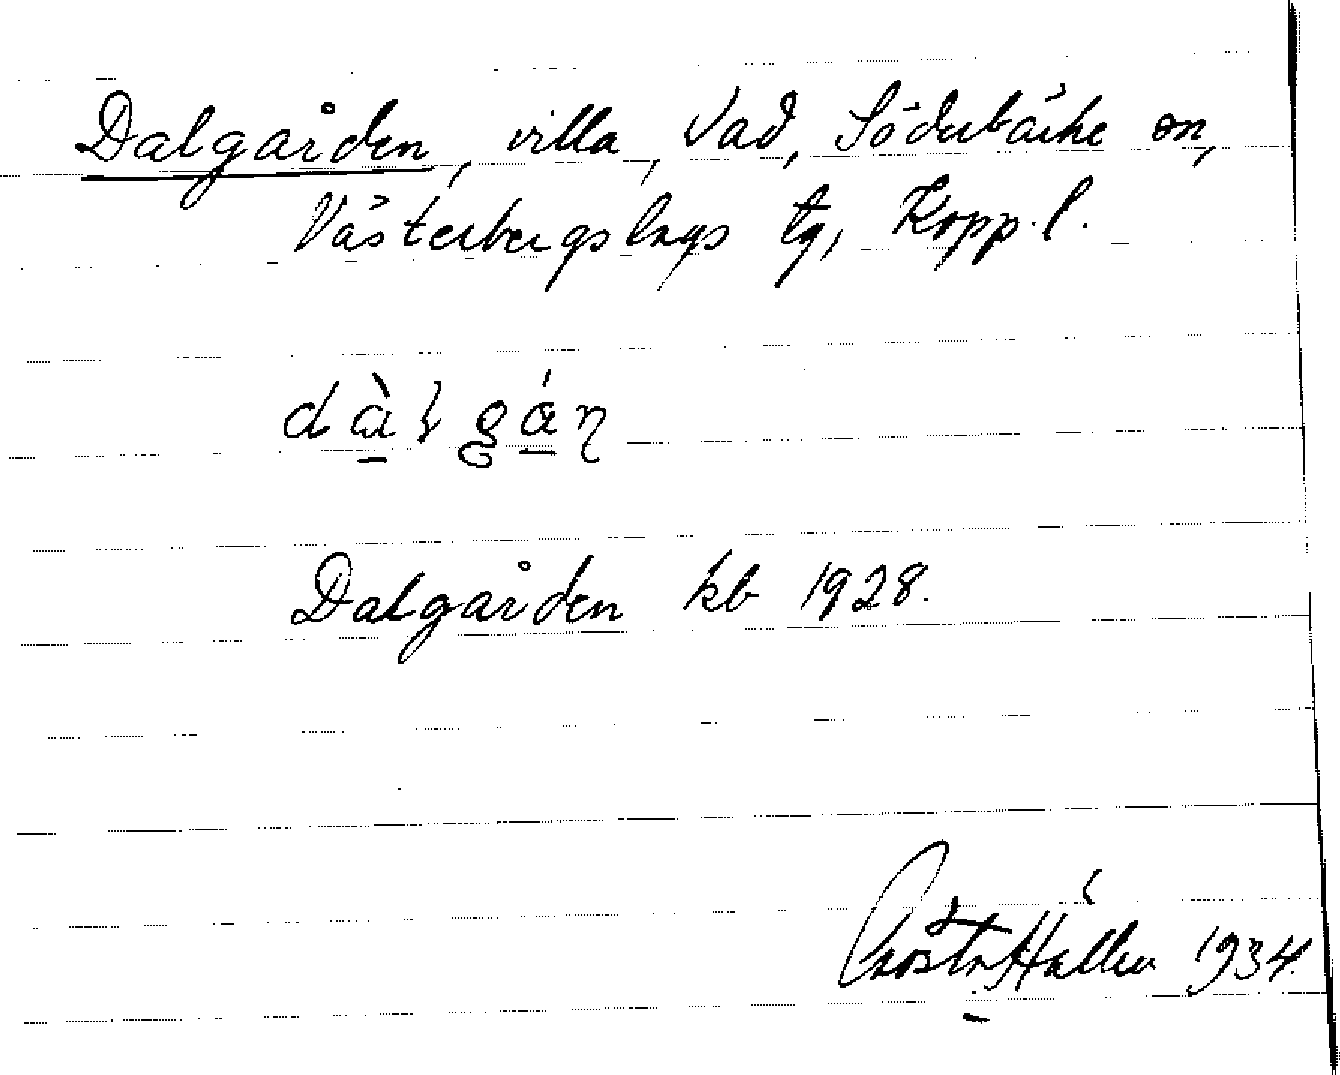 Dalgården, villa, Vad, Söderbärke sn,
Västerbergslags tg, Kopp. l.
dàlgán
Dalgården kb 1928.
Gösta Hallén 1934.